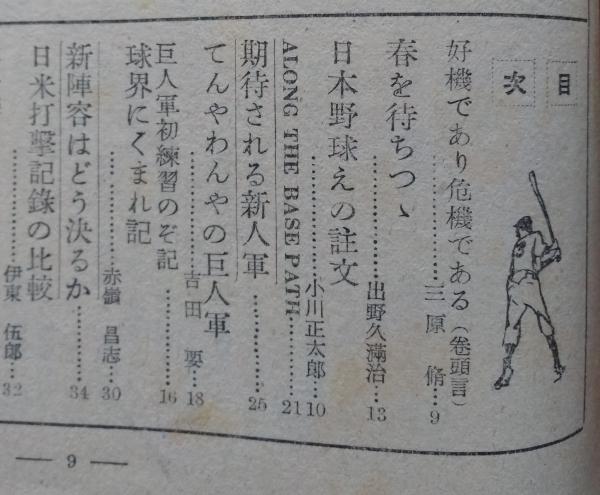 目次
好機であり危機である（卷頭言）……三原 脩…9
春を待ちつゝ……出野久滿治…13
日本野球えの註文……小川正太郎…10
ALONG THE BASE PATH……21
期待される新人軍……25
てんやわんやの巨人軍……吉田 要…18
巨人軍初練習のぞ記……16
球界にくまれ記……赤嶺 昌志…30
新陣容はどう決るか……34
日米打擊記錄の比較……伊東 伍郎…32
— 9 —